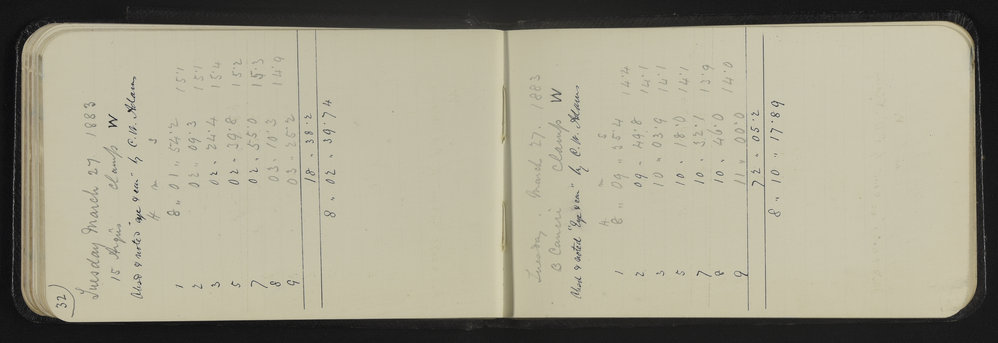 32
Tuesday March 27 1883
15 Argûs Clamp W
Obsd & noted "eye & ear" by C.W. Adams
H m s
1 8 " 01 " 54.2 15.1
2 02 " 09.3 15.1
3 02 " 24.4 15.4
5 02 " 39.8 15.2
7 02 " 55.0 15.3
8 03 10.3 14.9
9 03 " 25.2
18 " 38.2
8 " 02 " 39.74
Tuesday. March 27. 1883
B Cancri Clamp W
Obsd & noted "Eye & ear" by C.W. Adams
H m s
1 8 " 09 " 35.4 14.4
2 09 " 49.8 14.1
3 10 " 03.9 14.1
5 10 " 18.0 14.1
7 10 " 32.1 13.9
8 10 " 46.0 14.0
9 11 " 00.0
72 " 05.2
8 " 10 " 17.89